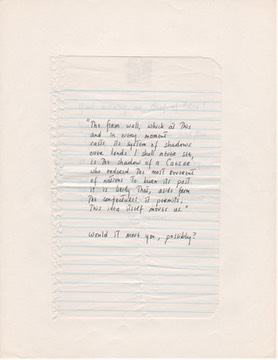 "The firm wall, which at this
and in every moment
casts its system of shadows
over lands I shall never see,
is the shadow of a Caesar
who ordered the most reverent
of nations to burn its past
it is likely that, aside from
the conjectures it permits,
this idea itself moves us."
would it move you, possibly?